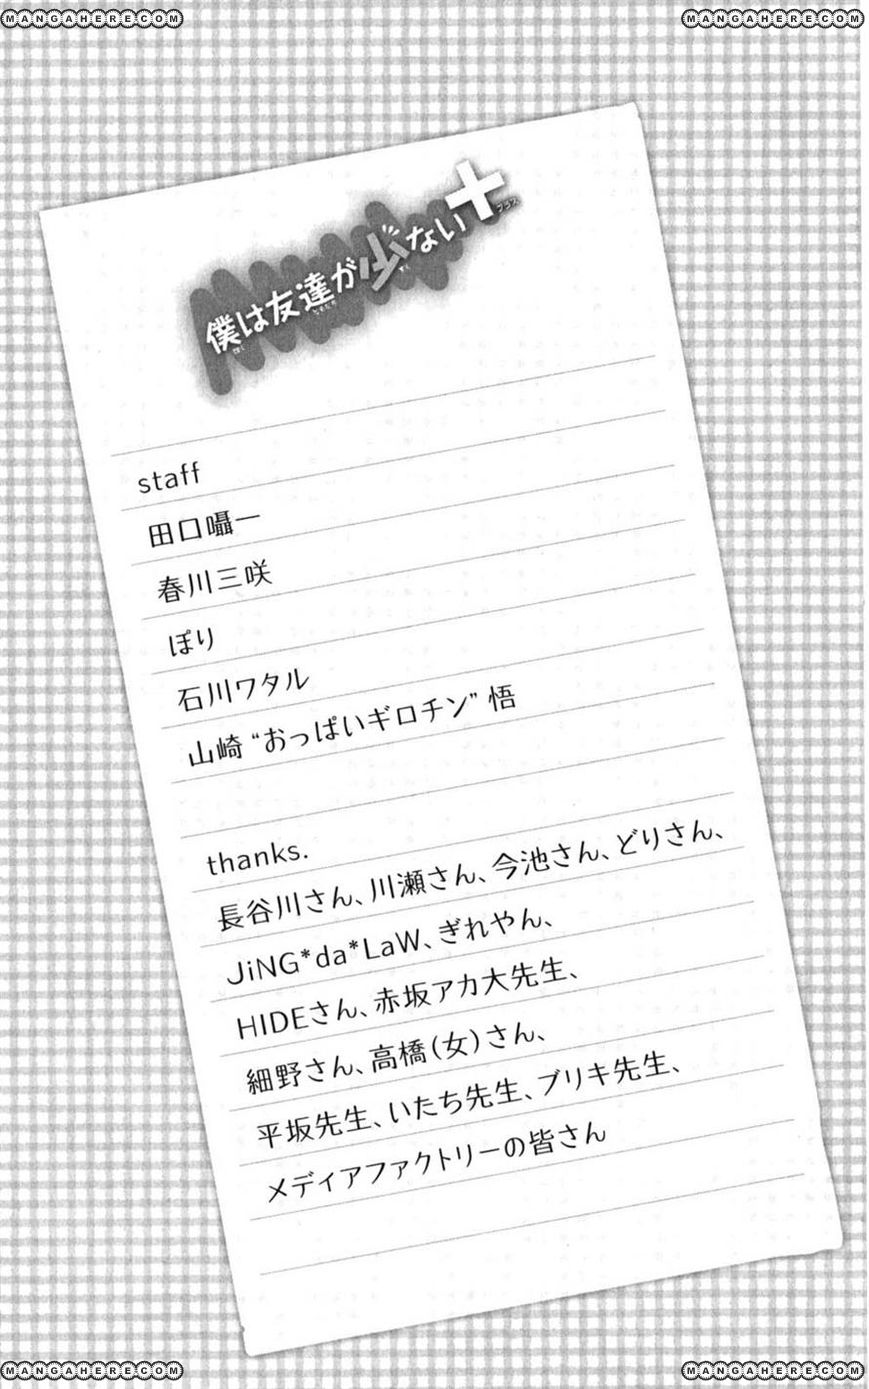 MANGAHERE.COM
MANGAHERE.COM
僕は友達が少ない+
ぼく ともだち すく プラス
staff
田口囁一
春川三咲
ぽり
石川ワタル
山崎 “おっぱいギロチン” 悟
thanks.
長谷川さん、川瀬さん、今池さん、どりさん、
JiNG*da*LaW、ぎれやん、
HIDEさん、赤坂アカ大先生、
細野さん、高橋(女)さん、
平坂先生、いたち先生、ブリキ先生、
メディアファクトリーの皆さん
MANGAHERE.COM
MANGAHERE.COM